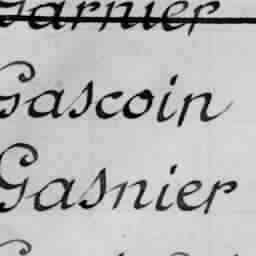 Garnier
Gascoin
Gasnier